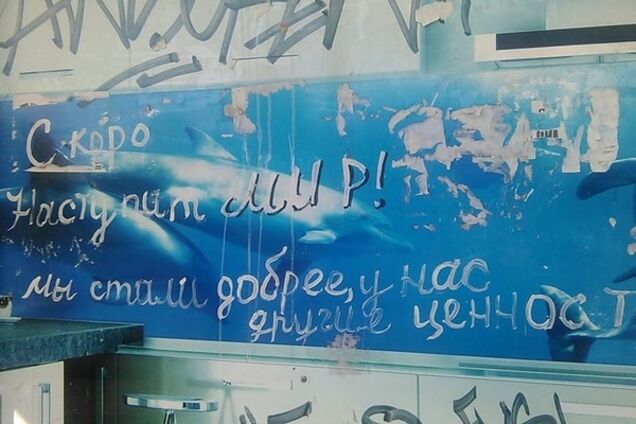 Скоро
Наступит МИР!
мы стали добрее, у нас
другие ценност